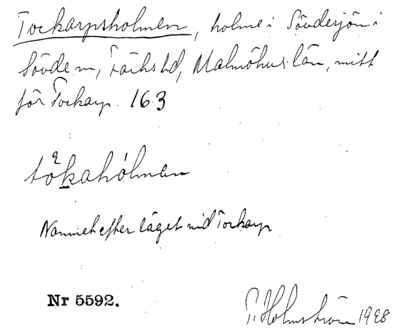 Tockarpsholmen, holme i Sövdesjön i
Sövde sn, Färs hd, Malmöhus län, mitt
för Tockarp. 163
tå̊kahólmen
Namnet efter läget vid Tockarp
Nr 5592.
P. Holmström 1928